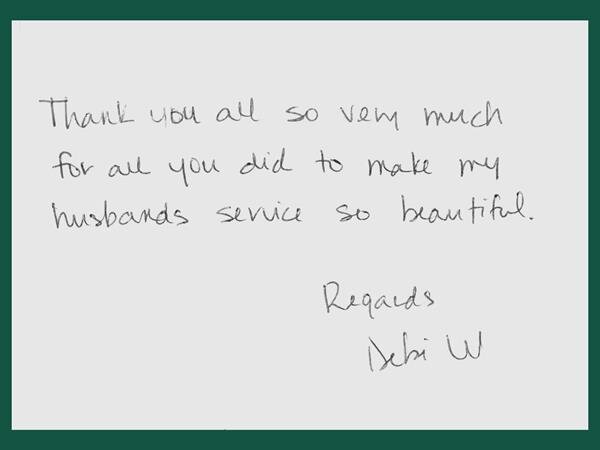 Thank you all so very much
for all you did to make my
husbands service so beautiful.
Regards
Debi W